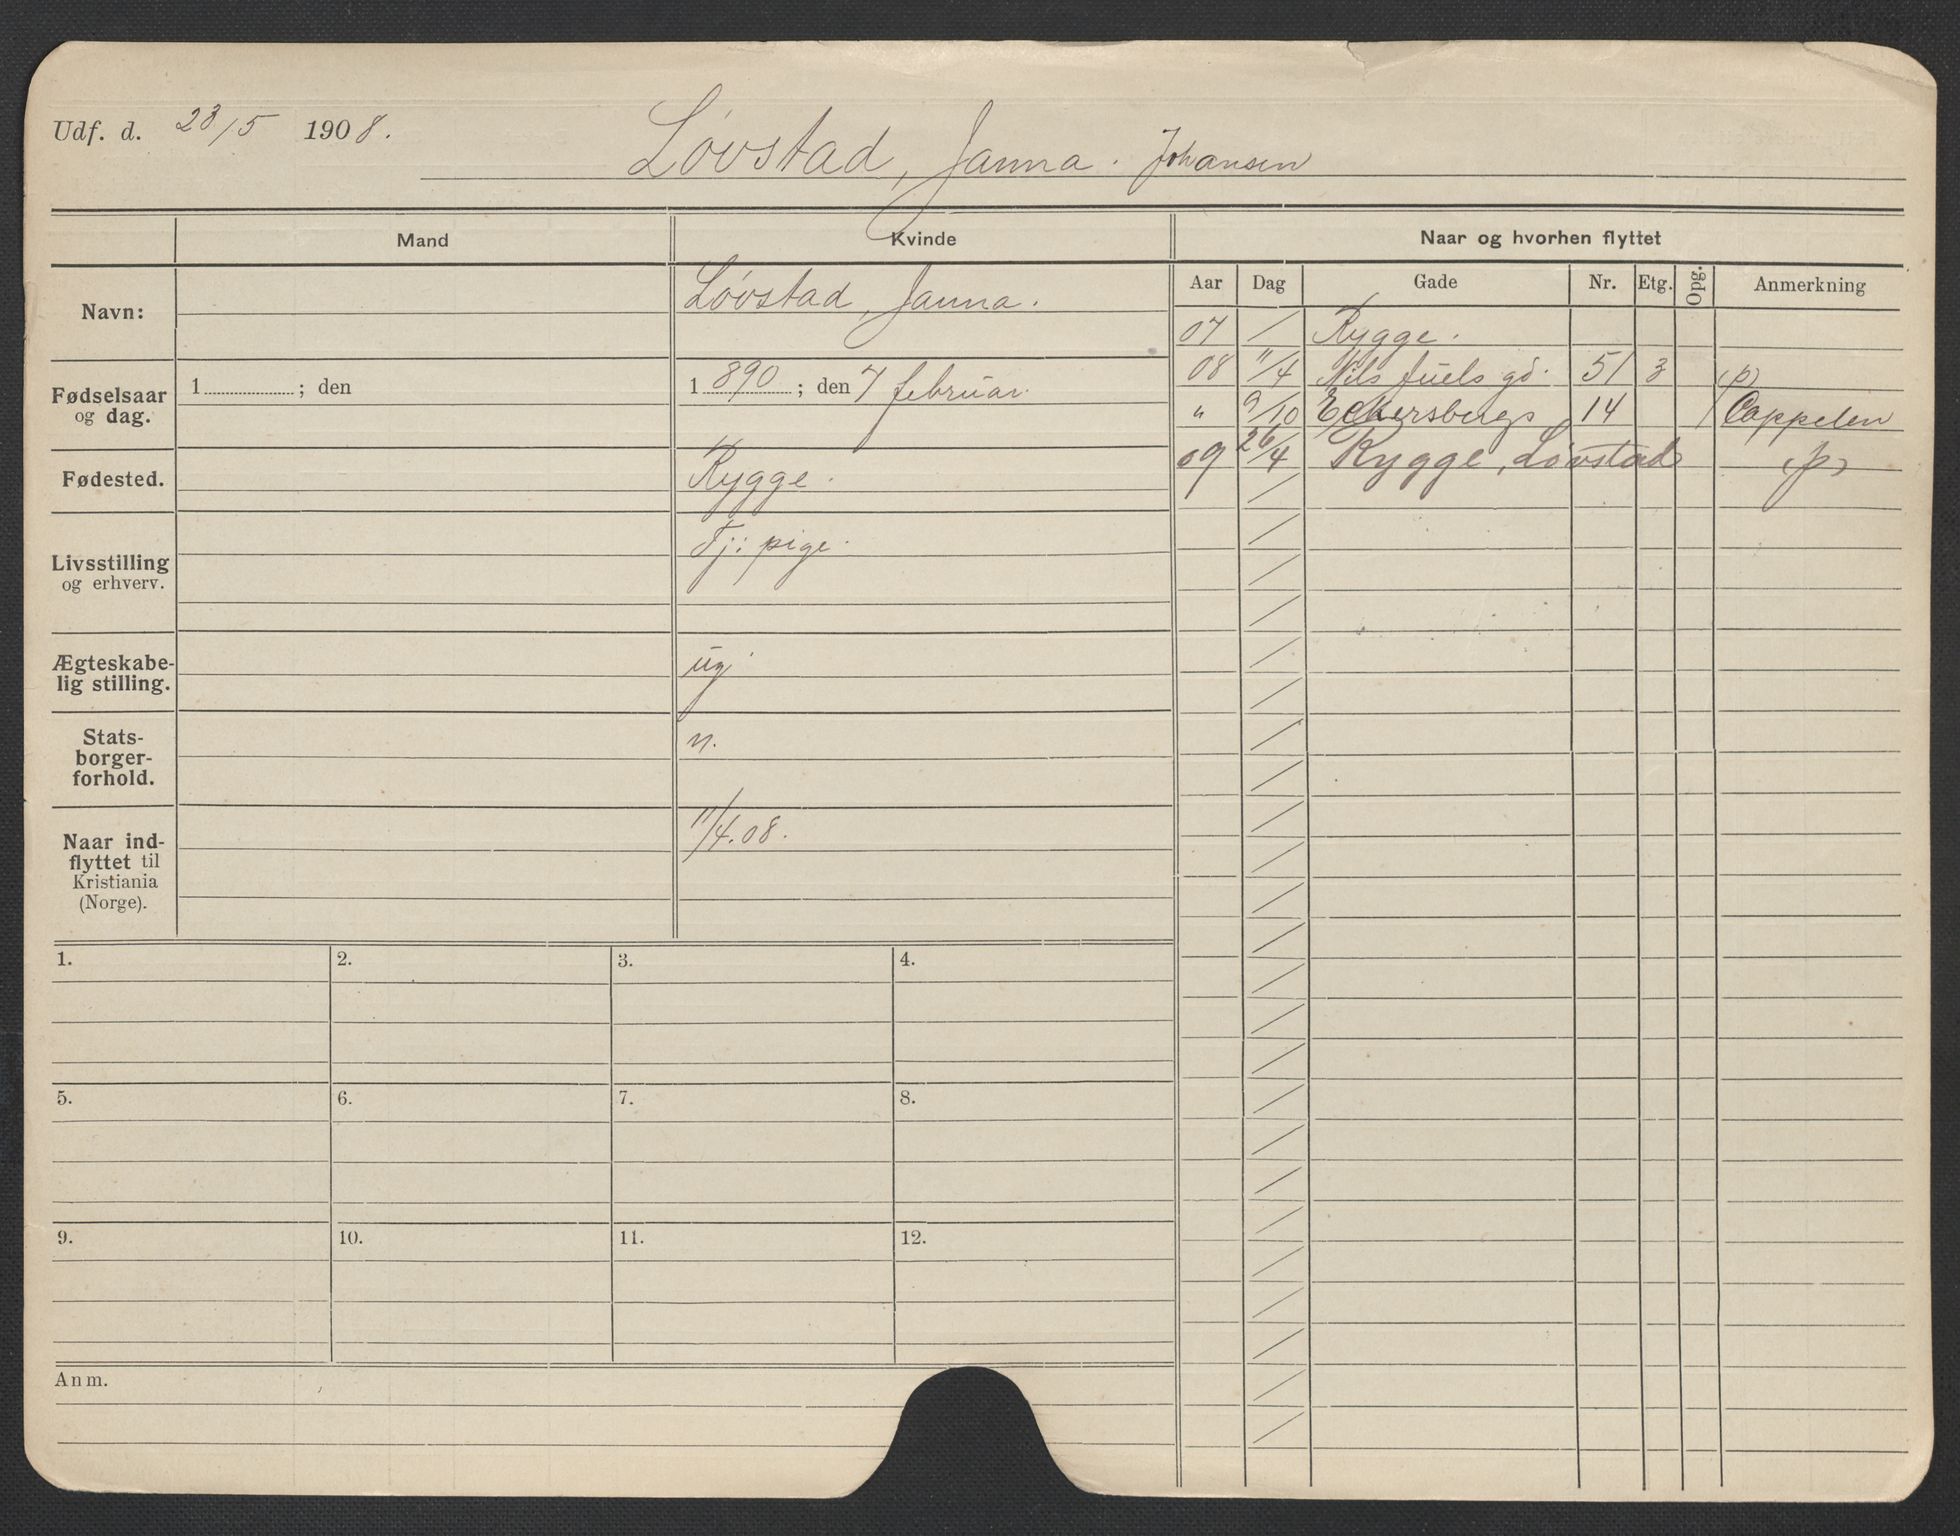 Udf. d. 23/5 1908.
Løvstad, Janna. Johansen
Mand
Kvinde
Navn:
Løvstad, Janna.
Fødselsaar og dag.
1 ; den
1 890 ; den 7 februar.
Fødested.
Rygge.
Livsstilling og erhverv.
Tj: pige.
Ægteskabe-
lig stilling.
ug.
Stats-
borger-
forhold.
n.
Naar ind-
flyttet til
Kristiania
(Norge).
11/4.08.
Naar og hvorhen flyttet
Aar Dag Gade Nr. Etg. Opg. Anmerkning
07 / Rygge.
08 11/4 Nils Juels gd. 51 3 (p)
" 9/10 Eckersbergs 14 Cappelen
09 26/4 Rygge, Løvstad (p)
1. 2. 3. 4.
5. 6. 7. 8.
9. 10. 11. 12.
Anm.